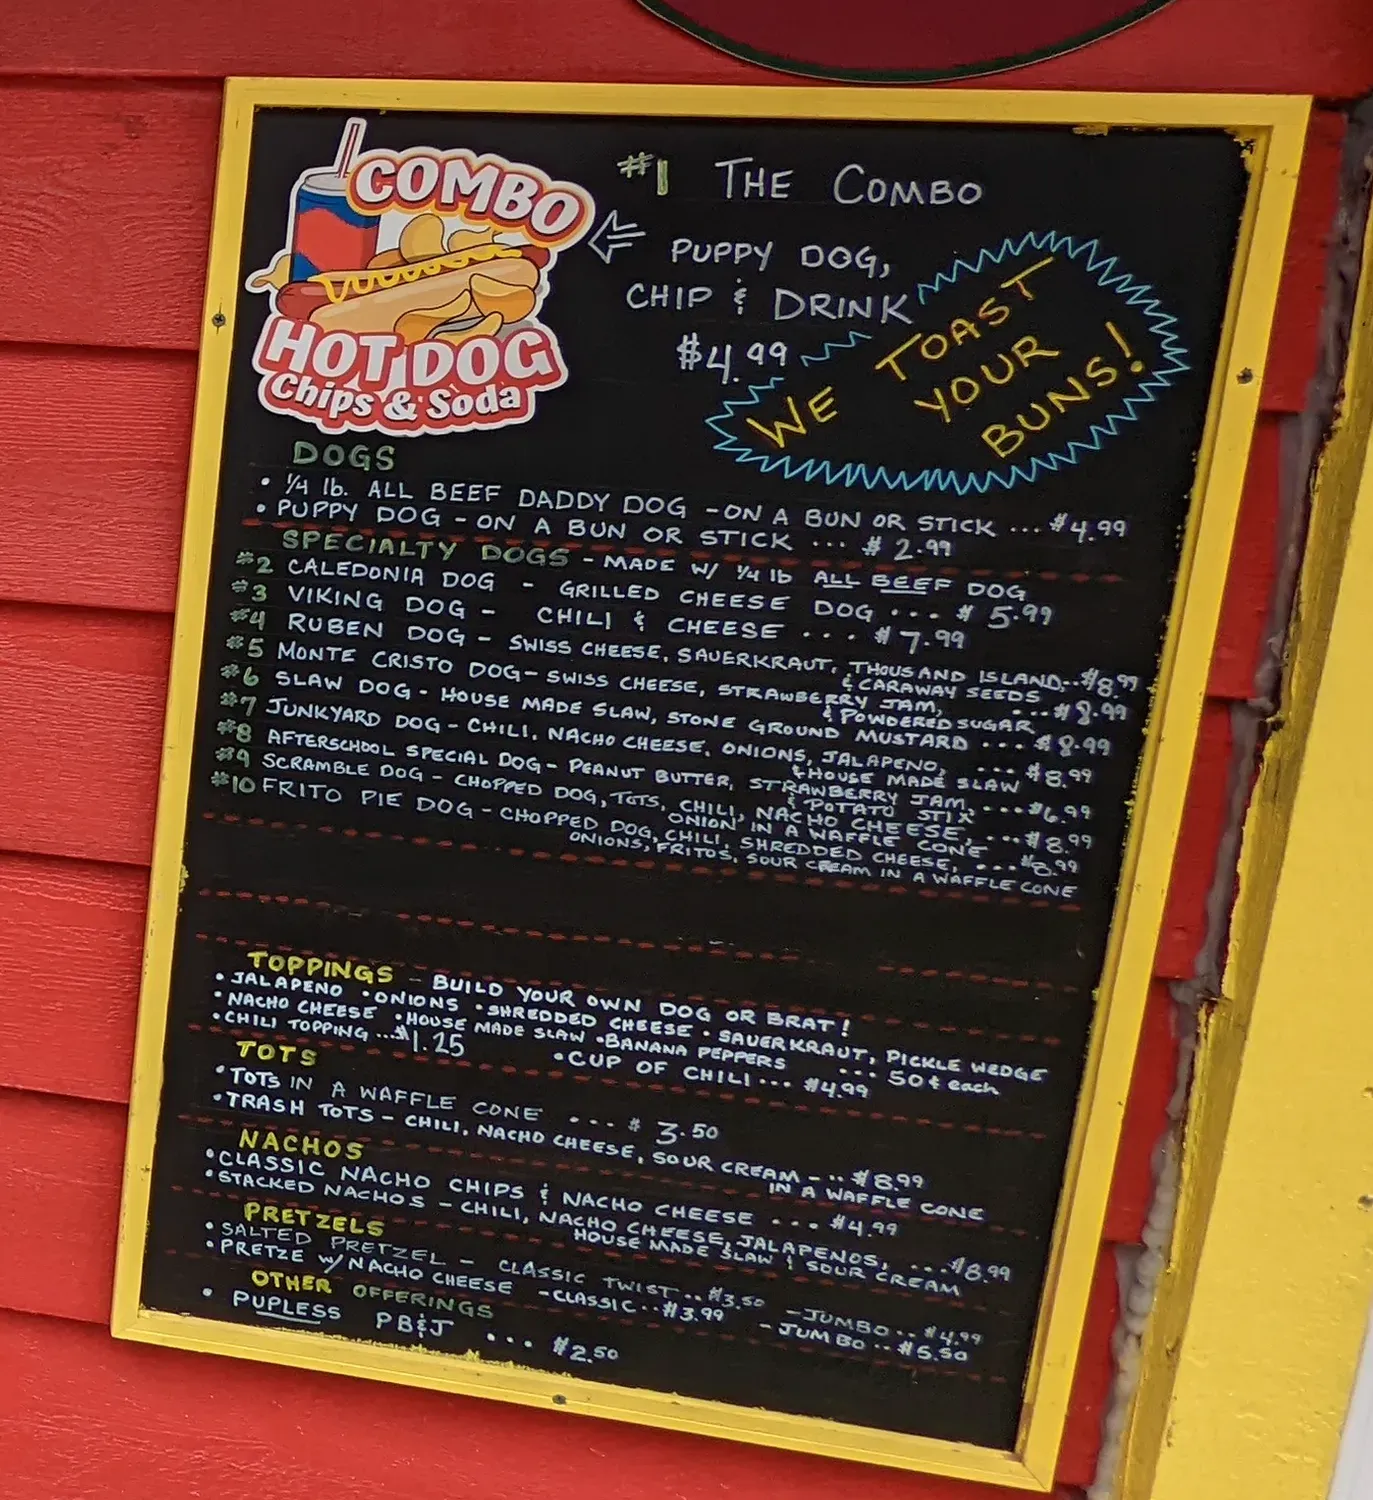 COMBO
HOT DOG
Chips & Soda
#1 THE COMBO
PUPPY DOG,
CHIP & DRINK
$4.99
WE TOAST
YOUR
BUNS!
DOGS
• 1/4 lb. ALL BEEF DADDY DOG - ON A BUN OR STICK ... $4.99
• PUPPY DOG - ON A BUN OR STICK ... $2.99
SPECIALTY DOGS - MADE W/ 1/4 lb ALL BEEF DOG
#2 CALEDONIA DOG - GRILLED CHEESE DOG ... $5.99
#3 VIKING DOG - CHILI & CHEESE ... $7.99
#4 RUBEN DOG - SWISS CHEESE, SAUERKRAUT, THOUSAND ISLAND, ... $8.99
& CARAWAY SEEDS
#5 MONTE CRISTO DOG - SWISS CHEESE, STRAWBERRY JAM, ... $8.99
& POWDERED SUGAR
#6 SLAW DOG - HOUSE MADE SLAW, STONE GROUND MUSTARD ... $8.99
#7 JUNKYARD DOG - CHILI, NACHO CHEESE, ONIONS, JALAPENO, ... $8.99
& HOUSE MADE SLAW
#8 AFTERSCHOOL SPECIAL DOG - PEANUT BUTTER, STRAWBERRY JAM, ... $6.99
& POTATO STIX
#9 SCRAMBLE DOG - CHOPPED DOG, TOTS, CHILI, NACHO CHEESE, ... $8.99
ONION IN A WAFFLE CONE
#10 FRITO PIE DOG - CHOPPED DOG, CHILI, SHREDDED CHEESE, ... $8.99
ONIONS, FRITOS, SOUR CREAM IN A WAFFLE CONE
TOPPINGS - BUILD YOUR OWN DOG OR BRAT!
• JALAPENO • ONIONS • SHREDDED CHEESE • SAUERKRAUT, PICKLE WEDGE
• NACHO CHEESE • HOUSE MADE SLAW • BANANA PEPPERS ... 50¢ each
• CHILI TOPPING ... $1.25 • CUP OF CHILI ... $4.99
TOTS
• TOTS IN A WAFFLE CONE ... $3.50
• TRASH TOTS - CHILI, NACHO CHEESE, SOUR CREAM - ... $8.99
IN A WAFFLE CONE
NACHOS
• CLASSIC NACHO CHIPS & NACHO CHEESE ... $4.99
• STACKED NACHOS - CHILI, NACHO CHEESE, JALAPENOS, ... $8.99
HOUSE MADE SLAW & SOUR CREAM
PRETZELS
• SALTED PRETZEL - CLASSIC TWIST .. $3.50 - JUMBO .. $4.99
• PRETZE W/ NACHO CHEESE - CLASSIC .. $3.99 - JUMBO .. $6.50
OTHER OFFERINGS
• PUPLESS PB&J ... $2.50